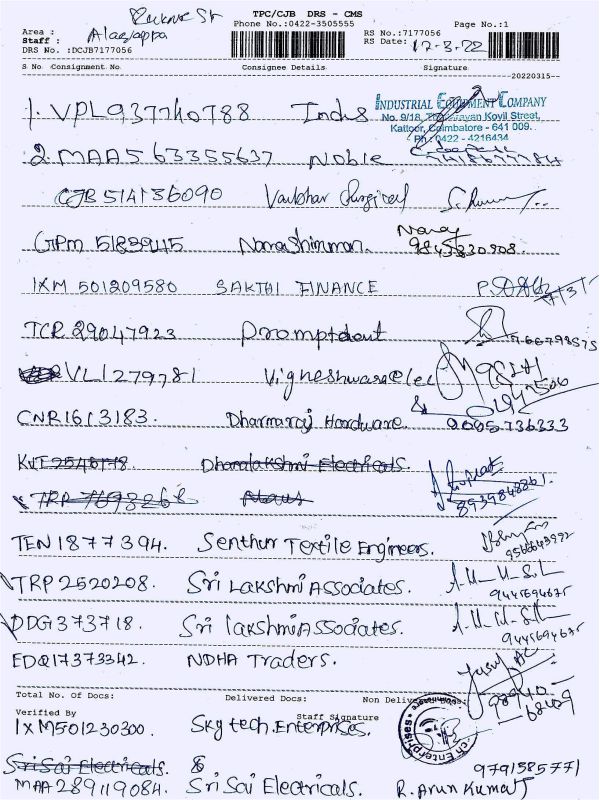 TPC/CJB DRS - CMS
Phone No.:0422-3505555
Page No.:1
Area :
Staff : Alagappa
DRS No. :DCJB7177056
RS No.:7177056
RS Date: 17-3-22
S No Consignment No Consignee Details Signature
20220315--
1. VPL937740788 Indus
INDUSTRIAL EQUIPMENT COMPANY
No. 9/18, Koyil Street,
Kattoor, Coimbatore - 641 009.
Ph : 0422 - 4216434
2. MAA563355637 Noble
CJB 514136090 Vaibhav Surgical
GPM 51839415 Narashimman. 9843830908.
IXM 501209580 SAKTHI FINANCE
TCR 29047923 Promptdent
VLI279781 Vigneshwara elec
CNR1613183. Dharmaraj Hardware. 9095736333
KVT Dhanalakshmi Electricals.
TRP
8939848861.
TEN1877394. Senthur Textile Engineers.
9566643992
TRP2520208. Sri Lakshmi Associates.
9445694675
DDG1373718. Sri lakshmi Associates.
9445694675
EDQ17373342. NDHA Traders.
98940
68409
Total No. Of Docs: Delivered Docs: Non Delivered Docs:
Verified By Staff Signature
IXM501230300. Sky tech. Enterprises.
Sri Sai Electricals. 9791585771
MAA 289119084. Sri Sai Electricals. R. Arun Kumar